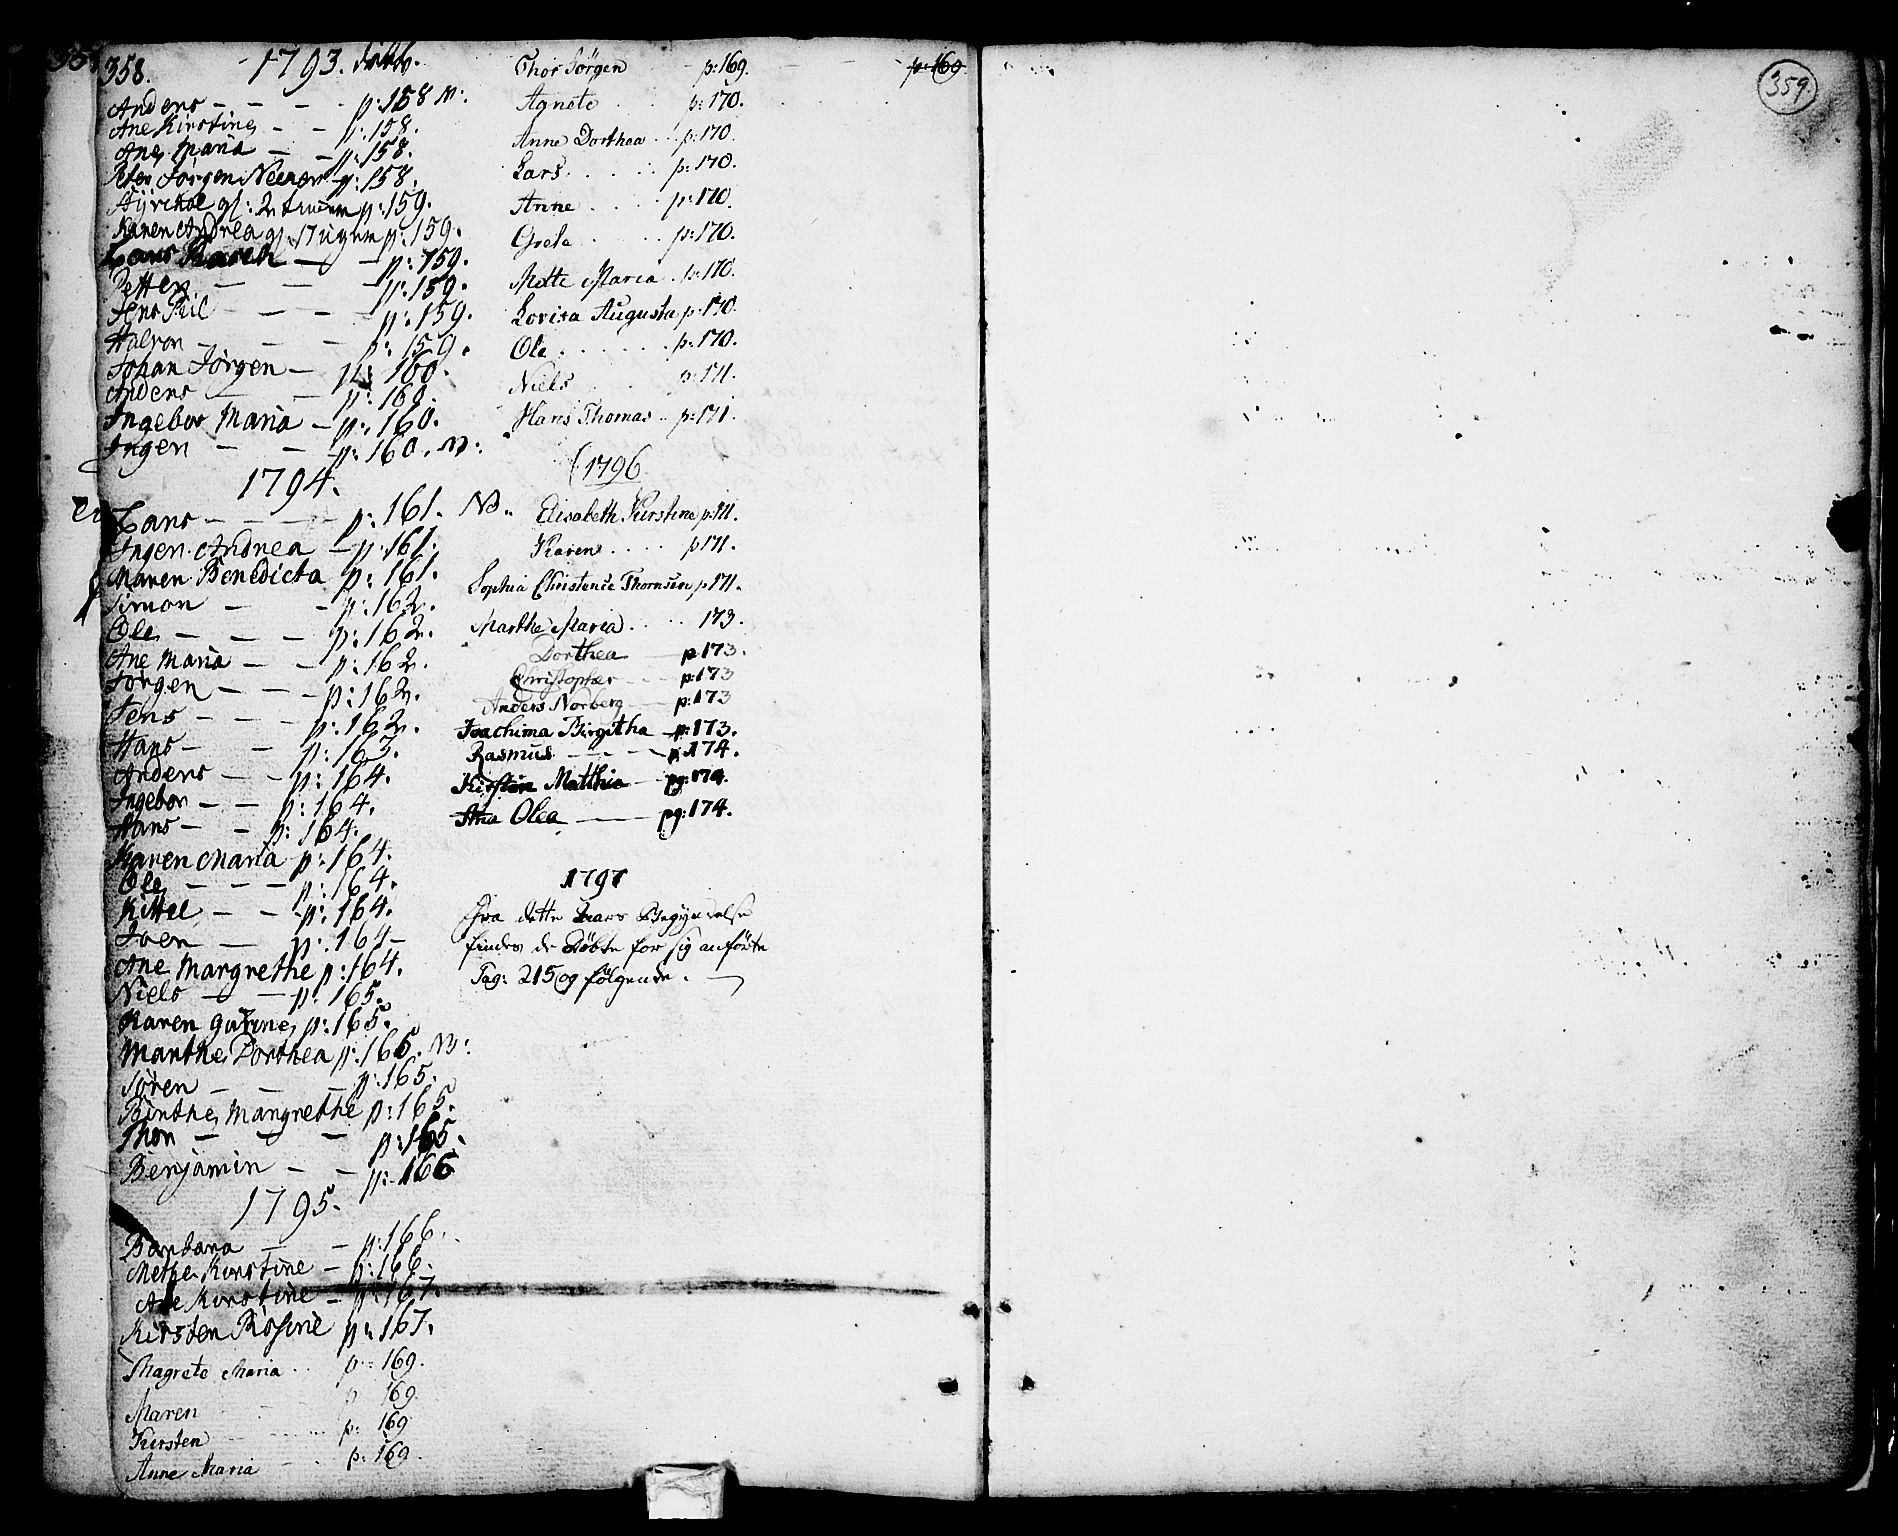 358.
1793. døbte.
Anders - - - p: 158 NB:
Ane Kirstine - - p: 158.
Ane Maria - - p: 158.
Peter Jørgen p: 158.
p: 159.
Karen Andrea p: 159.
Lars - - p: 159.
Petter - - - p: 159.
Jens Kiil - - - p: 159.
Halvor - - - p: 159.
Johan Jørgen - p: 160.
Anders - - p: 160.
Ingebor Maria - p: 160.
Ingen - - p: 160. NB:
1794.
Lars - - - - p: 161. NB.
Ingen Andrea - p: 161.
Maren Benedicta p: 161.
Simon - - p: 162.
Ole - - - p: 162.
Ane Maria - - p: 162.
Jørgen - - - p: 162.
Jens - - - p: 162.
Hans - - p: 163.
Anders - - p: 164.
Ingebor - - p: 164.
Hans - - p: 164.
Karen Maria p: 164.
Ole - - - p: 164.
Kittel - - p: 164.
Joen - p: 164
Ane Margrethe p: 164.
Niels - - p: 165.
Karen p: 165.
Marthe Dorthea p: 165. NB:
Søren - - - p: 165.
Birthe Margrethe p: 165.
Thor - - - p: 165.
Benjamin - - p: 166
1795.
Barbara - - p: 166.
Methe Kirstine - p: 166.
Ane Kirstine - p: 167.
Kirsten Rosine p: 167.
Magrete Maria .. p: 169.
Maren p 169.
Kirsten p: 169
Anne Maria p: 169.
Thor Jørgen - p: 169. - - p: 160
Agnete p: 170.
Anne Dorthea .. p: 170.
Lars. p: 170.
Anne p: 170.
Grete p: 170.
Mette Maria . p: 170.
Lovisa Augusta p: 170.
Ole p: 170.
Niels p: 171.
Hans Thomas .. p: 171.
1796
Elisabeth Kirstine p: 171.
Karen .... p 171.
Sophia Christence Thomsen p 171.
Marthe Maria .... 173.
Dorthea - p 173.
Christopher - - p: 173
Anders Norberg - p: 173
Joachima Birgitha - p: 173.
Rasmus - - - p: 174.
Kirsten Matthia - pg: 174.
Ana Olea - pg: 174.
1797
Fra dette Aars Begyndelse
findes de Døbte for sig anførte
Pag: 215 og følgende.
359.